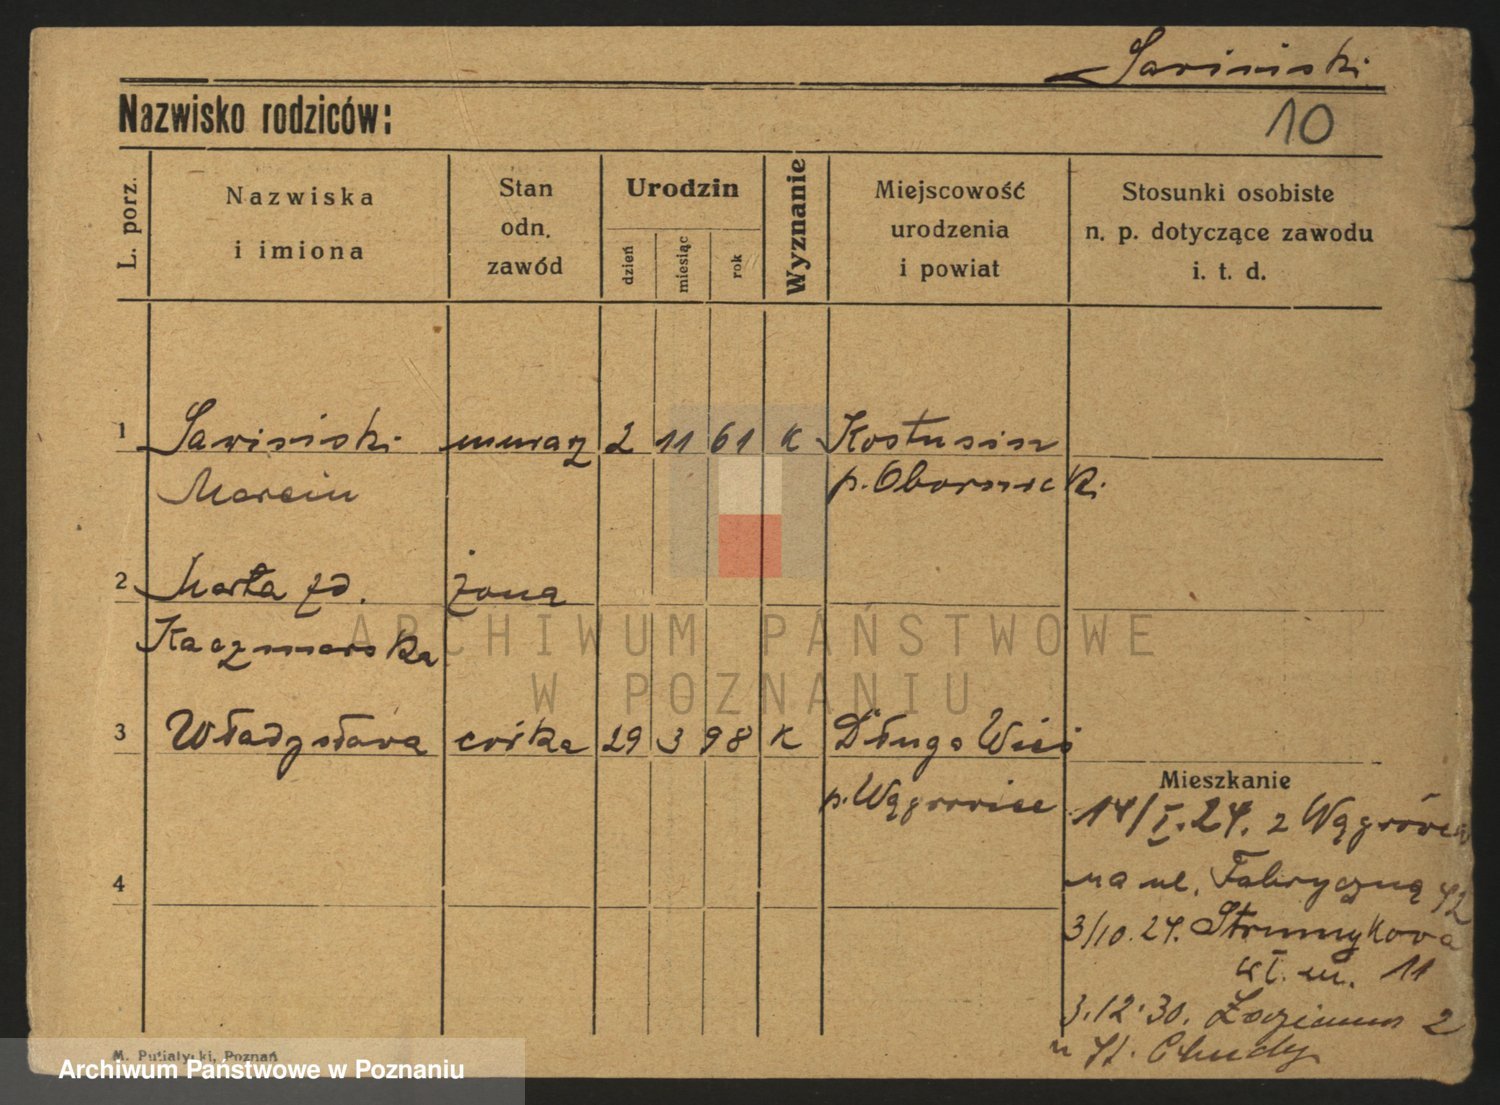 Nazwisko rodziców:
10
L. porz.
Nazwiska
i imiona
Stan
odn.
zawód
Urodzin
dzień
miesiąc
rok
Wyznanie
Miejscowość
urodzenia
i powiat
Stosunki osobiste
n. p. dotyczące zawodu
i. t. d.
1 murarz 2 11 61 K
Marcin p. Obornicki
2 Marta zd. żona
Kaczmarska
3 Władysława córka 29 3 98 K Długa Wieś
p. Wągrowiec
Mieszkanie
14/I.24. z Wągrówca
4
na ul. Fabryczną 42
3/10.24. Strumykowa
wł. m. 11
3.12.30. 2
u St. Chudy
M. Putiatycki, Poznań
ARCHIWUM PAŃSTWOWE
W POZNANIU
Archiwum Państwowe w Poznaniu